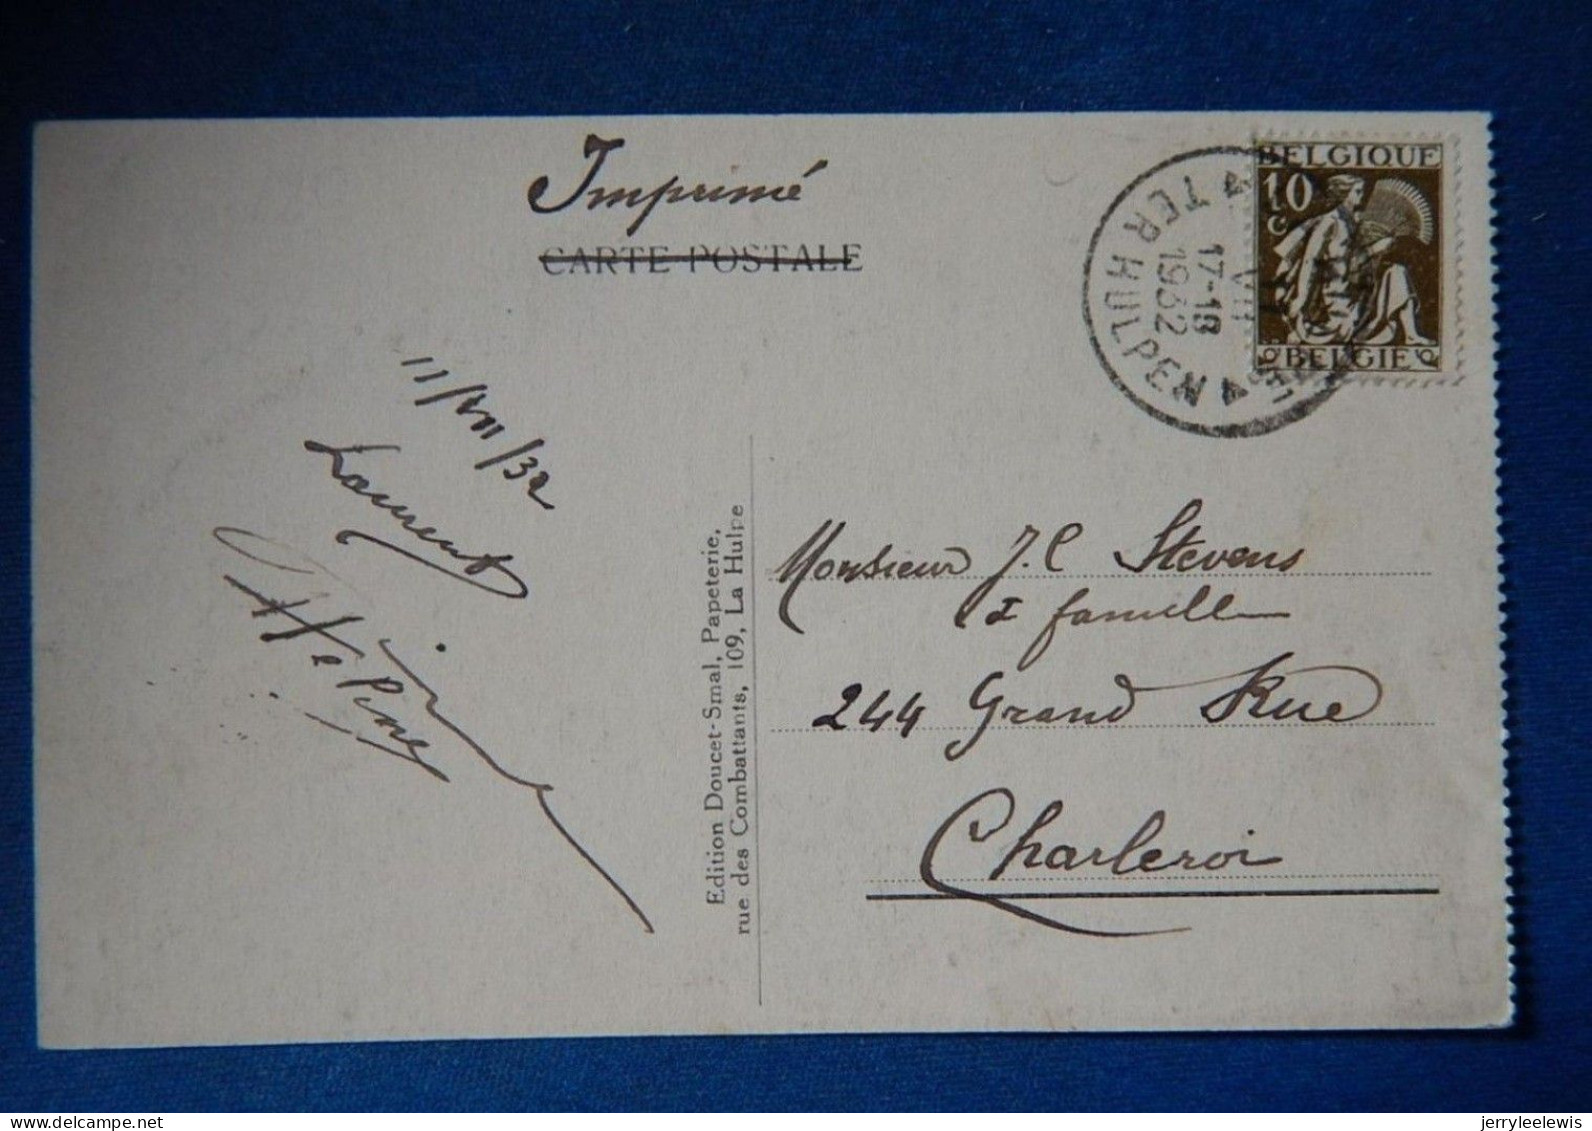 Imprimé
CARTE POSTALE
BELGIQUE
10
c
BELGIE
TER HULPEN
17-18
VIII
1932
11/VIII/32
Laurent
Edition Doucet-Smal, Papeterie,
rue des Combattants, 109, La Hulpe
Monsieur J. C Stevens
& famille
244 Grand Rue
Charleroi
jerryleelewis